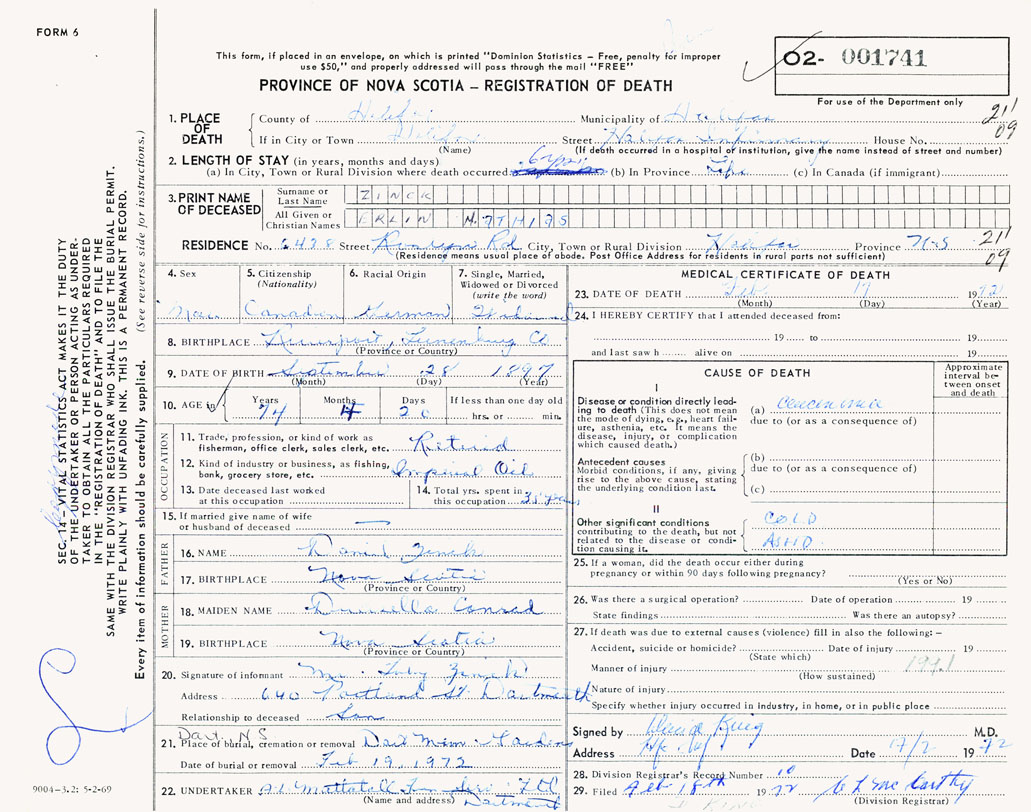 FORM 6
This form, if placed in an envelope, on which is printed "Dominion Statistics – Free, penalty for improper
use $50," and properly addressed will pass through the mail "FREE"
02- 001741
For use of the Department only
PROVINCE OF NOVA SCOTIA – REGISTRATION OF DEATH
21/09
1. PLACE OF DEATH
County of Halifax Municipality of Halifax
If in City or Town Halifax Street Halifax Infirmary House No.
(Name) (If death occurred in a hospital or institution, give the name instead of street and number)
2. LENGTH OF STAY (in years, months and days)
(a) In City, Town or Rural Division where death occurred 6 yrs. (b) In Province Life (c) In Canada (if immigrant)
3. PRINT NAME OF DECEASED
Surname or Last Name ZINCK
All Given or Christian Names ERLIN MATHIAS
RESIDENCE No. 6428 Street Rd City, Town or Rural Division Halifax Province N.S
21/09
(Residence means usual place of abode. Post Office Address for residents in rural parts not sufficient)
4. Sex Male
5. Citizenship (Nationality) Canadian
6. Racial Origin German
7. Single, Married, Widowed or Divorced (write the word) Widowed
8. BIRTHPLACE Lunenburg Co
(Province or Country)
9. DATE OF BIRTH September 28 1897
(Month) (Day) (Year)
10. AGE in Years 74 Months 4 Days 20 If less than one day old hrs. or min.
OCCUPATION
11. Trade, profession, or kind of work as fisherman, office clerk, sales clerk, etc. Retired
12. Kind of industry or business, as fishing, bank, grocery store, etc. Imperial Oil
13. Date deceased last worked at this occupation
14. Total yrs. spent in this occupation 35 years
15. If married give name of wife or husband of deceased —
FATHER
16. NAME Daniel Zinck
17. BIRTHPLACE Nova Scotia
(Province or Country)
MOTHER
18. MAIDEN NAME Conrad
19. BIRTHPLACE Nova Scotia
(Province or Country)
20. Signature of informant Mr. Zinck
Address 640 Portland St. Dartmouth
Relationship to deceased Son
Dart. N S
21. Place of burial, cremation or removal Dart Mem. Gardens
Date of burial or removal Feb 19, 1972
22. UNDERTAKER A.L. Mattatall
(Name and address) Dartmouth
MEDICAL CERTIFICATE OF DEATH
23. DATE OF DEATH Feb 17 1972
(Month) (Day) (Year)
24. I HEREBY CERTIFY that I attended deceased from:
19 to 19
and last saw h alive on 19
CAUSE OF DEATH
Approximate interval between onset and death
I
Disease or condition directly leading to death (This does not mean the mode of dying, e.g., heart failure, asthenia, etc. It means the disease, injury, or complication which caused death.)
(a)
due to (or as a consequence of)
Antecedent causes
Morbid conditions, if any, giving rise to the above cause, stating the underlying condition last.
(b)
due to (or as a consequence of)
(c)
II
Other significant conditions contributing to the death, but not related to the disease or condition causing it.
COLD
ASHD
25. If a woman, did the death occur either during pregnancy or within 90 days following pregnancy?
(Yes or No)
26. Was there a surgical operation? Date of operation 19
State findings Was there an autopsy?
27. If death was due to external causes (violence) fill in also the following: –
Accident, suicide or homicide? Date of injury 19
(State which)
Manner of injury
(How sustained)
Nature of injury
Specify whether injury occurred in industry, in home, or in public place
Signed by M.D.
Address Date 17/2 1972
28. Division Registrar's Record Number 10
29. Filed Feb 18th 1972 McCarthy
(Division Registrar)
SEC. 14 – VITAL STATISTICS ACT MAKES IT THE DUTY
OF THE UNDERTAKER OR PERSON ACTING AS UNDER-
TAKER TO OBTAIN ALL THE PARTICULARS REQUIRED
IN THE "REGISTRATION OF DEATH" AND TO FILE THE
SAME WITH THE DIVISION REGISTRAR WHO SHALL ISSUE THE BURIAL PERMIT.
WRITE PLAINLY WITH UNFADING INK. THIS IS A PERMANENT RECORD.
Every item of information should be carefully supplied. (See reverse side for instructions.)
9004-3.2: 5-2-69